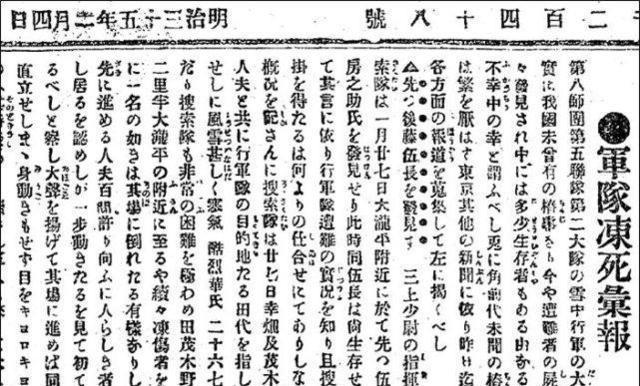 二百四十八號
明治三十五年二月四日
軍隊凍死彙報
第八師團第五聯隊第二大隊の雪中行軍の大
實に我國未曾有の椿事なり今や遭難者の屍
々發見され中には多少生存者もある由なる
不幸中の幸と謂ふべし兎に角前代未聞の椿
は繁を厭はず東京其他の新聞に依り昨日迄
各方面の報道を蒐集して左に掲ぐべし
△先づ後藤伍長を發見す 三上少尉の指揮
索隊は一月廿七日大瀧平附近に於て先づ伍
房之助氏を發見せり此時同伍長は尚生存せ
て其言に依り行軍隊遭難の實況を知り且搜
掛を得たるは何よりの仕合せにてありしな
概況を記さんに搜索隊は廿七日幸畑及茂木
人夫と共に行軍隊の目的地たる田代を指し
せしに風雪甚しく寒氣 酷烈華氏 二十六七
だり搜索隊も非常の困難を極わめ田茂木野
二里半大瀧平の附近に至るや續々凍傷者を
に一名の如きは其場に倒れたる有樣なりし
先に進める人夫百間許り向ふに人らしき者
し居るを認めしが一步動きたるを見て初て
るべしと察し大聲を揚げて其場に進めば同
直立せしまゝ身動きもせず目をキヨロキヨ